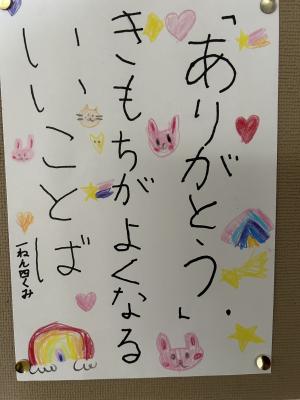 「ありがとう.」
きもちがよくなる
いいことば
一ねん四くみ